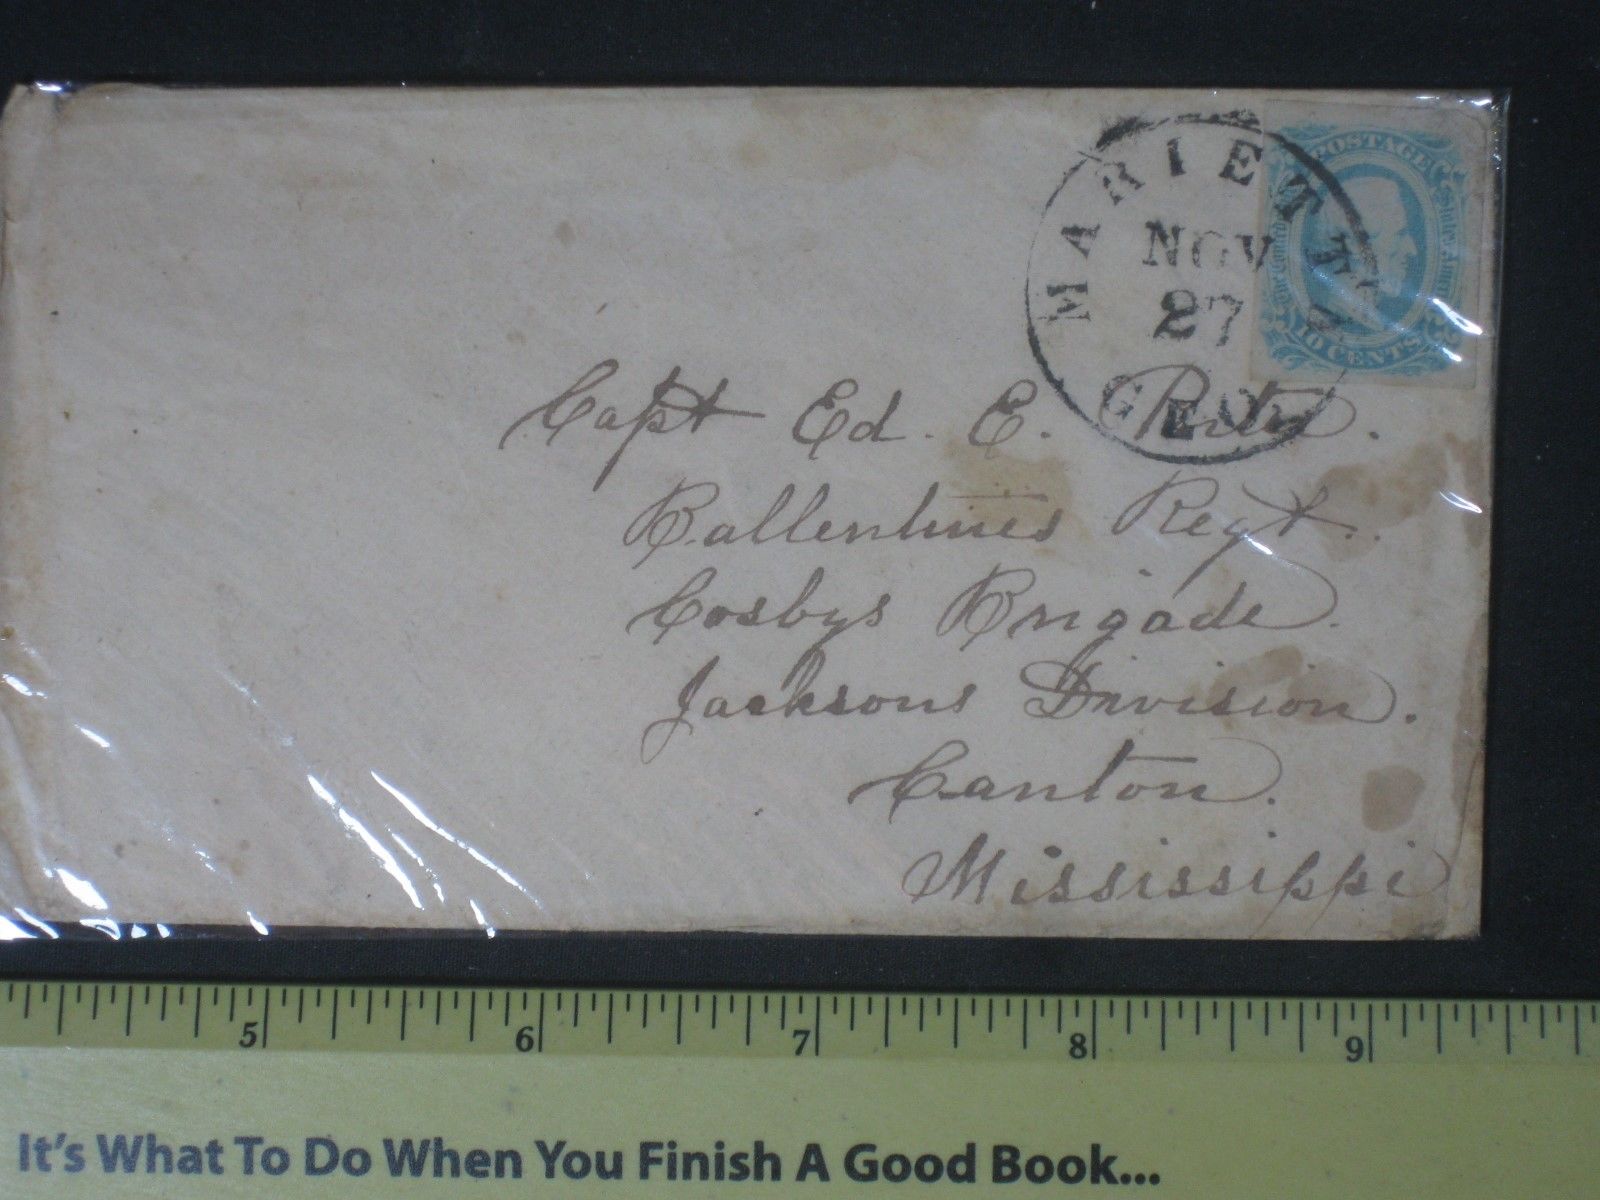 MARIETTA
NOV
27
GEO.
POSTAGE
The Confed
States Amer
10 CENTS
Capt Ed. E. Porter.
Ballentines Regt.
Cosbys Brigade.
Jacksons Division.
Canton.
Mississippi
5 6 7 8 9
It's What To Do When You Finish A Good Book...